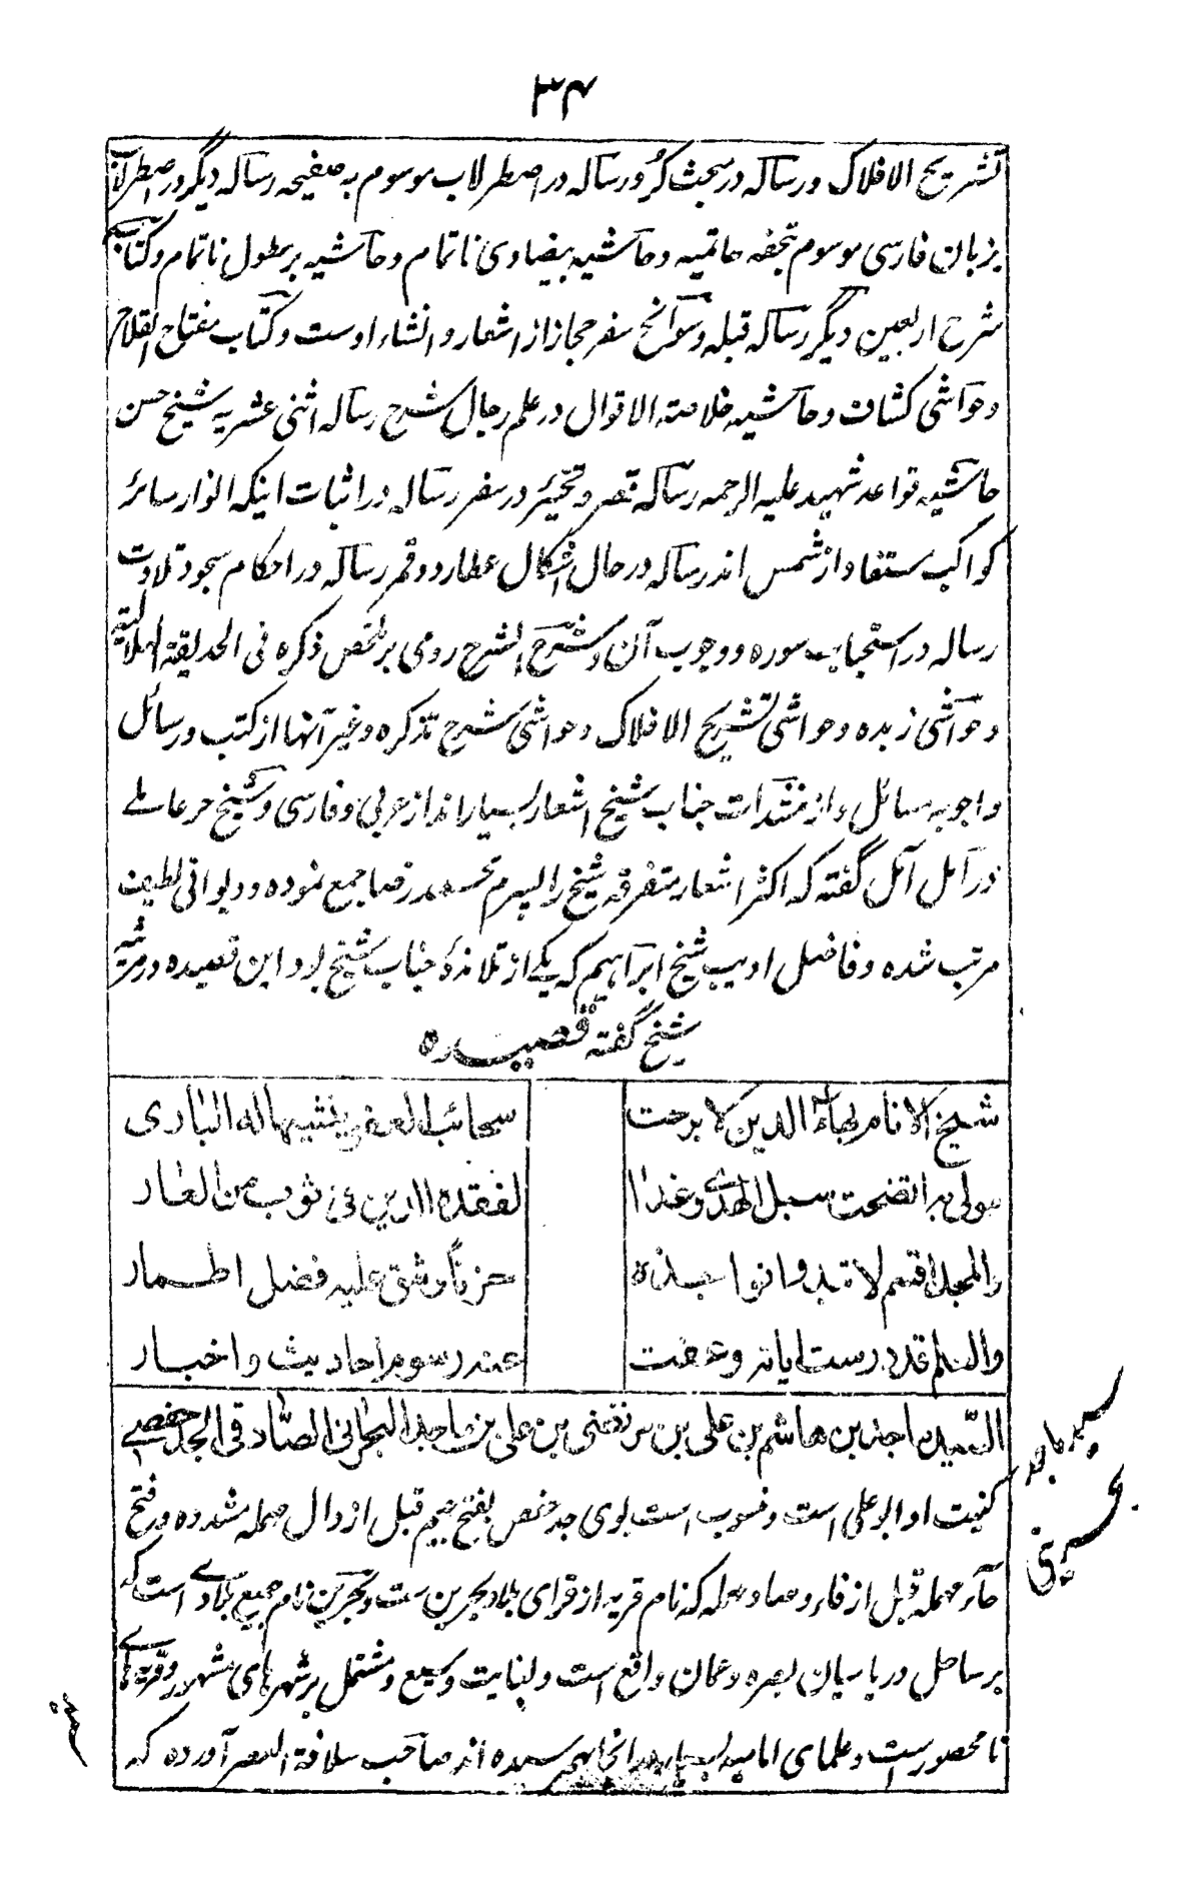 ۳۴
تشریح الافلاک و رساله در مبحث کُر و رساله در اصطرلاب موسوم به صفیحه رساله دیگر در اصطرلاب
بزبان فارسی موسوم بتحفه حاتمیه و حاشیه بیضاوی ناتمام و حاشیه بر مطول ناتمام و کتاب
شرح اربعین دیگر رساله قبله و سوانح سفر حجاز از اشعار و انشاء اوست و کتاب مفتاح الفلاح
و حواشی کشاف و حاشیه خلاصة الاقوال در علم رجال شرح رساله اثنی عشریه شیخ حسن
حاشیه قواعد شهید علیه الرحمه رساله قصر و تخییر در سفر رساله در اثبات اینکه انوار سائر
کواکب مستفاد از شمس اند رساله در حال اشکال عطارد و قمر رساله در احکام سجود تلاوت
رساله در استحباب سوره و وجوب آن و شرح الشرح رومی بر ملخص ذکره فی الحدیقة الهلالیة
و حواشی زبده و حواشی تشریح الافلاک و حواشی شرح تذکره و غیر آنها از کتب و رسائل
و اجوبه مسائل و از منشدات جناب شیخ اشعار بسیار اند از عربی و فارسی و شیخ حر عاملے
در آمل آمل گفته که اکثر اشعار متفرقه شیخ را پسرم محمد رضا جمع نموده و دیوانی لطیف
مرتب شده و فاضل ادیب شیخ ابراهیم که یکے از تلامذهٔ جناب شیخ بود این قصیده در مرثیه
شیخ گفته قصیده
شیخ الانام بهاء الدین لا برحت سحائب العفو ینشیها له الباری
مولی به اتضحت سبل الهدی وغدا لفقده الدین فی ثوب من القار
والمجد اقسم لا تبدو نواجذه حزناً وشق علیه فضل اطمار
والعلم قد درست ایاته وعفت عنه رسوم احادیث واخبار
السّید ماجد بن هاشم بن علی بن مرتضی بن علی بن ماجد البحرانی الصّادقی الجدحفصے
کنیت او ابو علی است و منسوب است بوی جد حفص بفتح جیم قبل از دال مهمله مشدده و فتح
حآء مهمله قبل از فاء و صاد مهمله که نام قریه از قرای بلاد بحرین ست و بحرین نام جمیع بلادے است که
بر ساحل دریا میان بصره و عمان واقع است و بنایت وسیع و مشتمل بر شهرهای مشهور و قریه های
نا محصور است و علمای امامیه بسیار در انجا بهم رسیده اند صاحب سلافة العصر آورده که
سید ماجد
بحرینی
سید